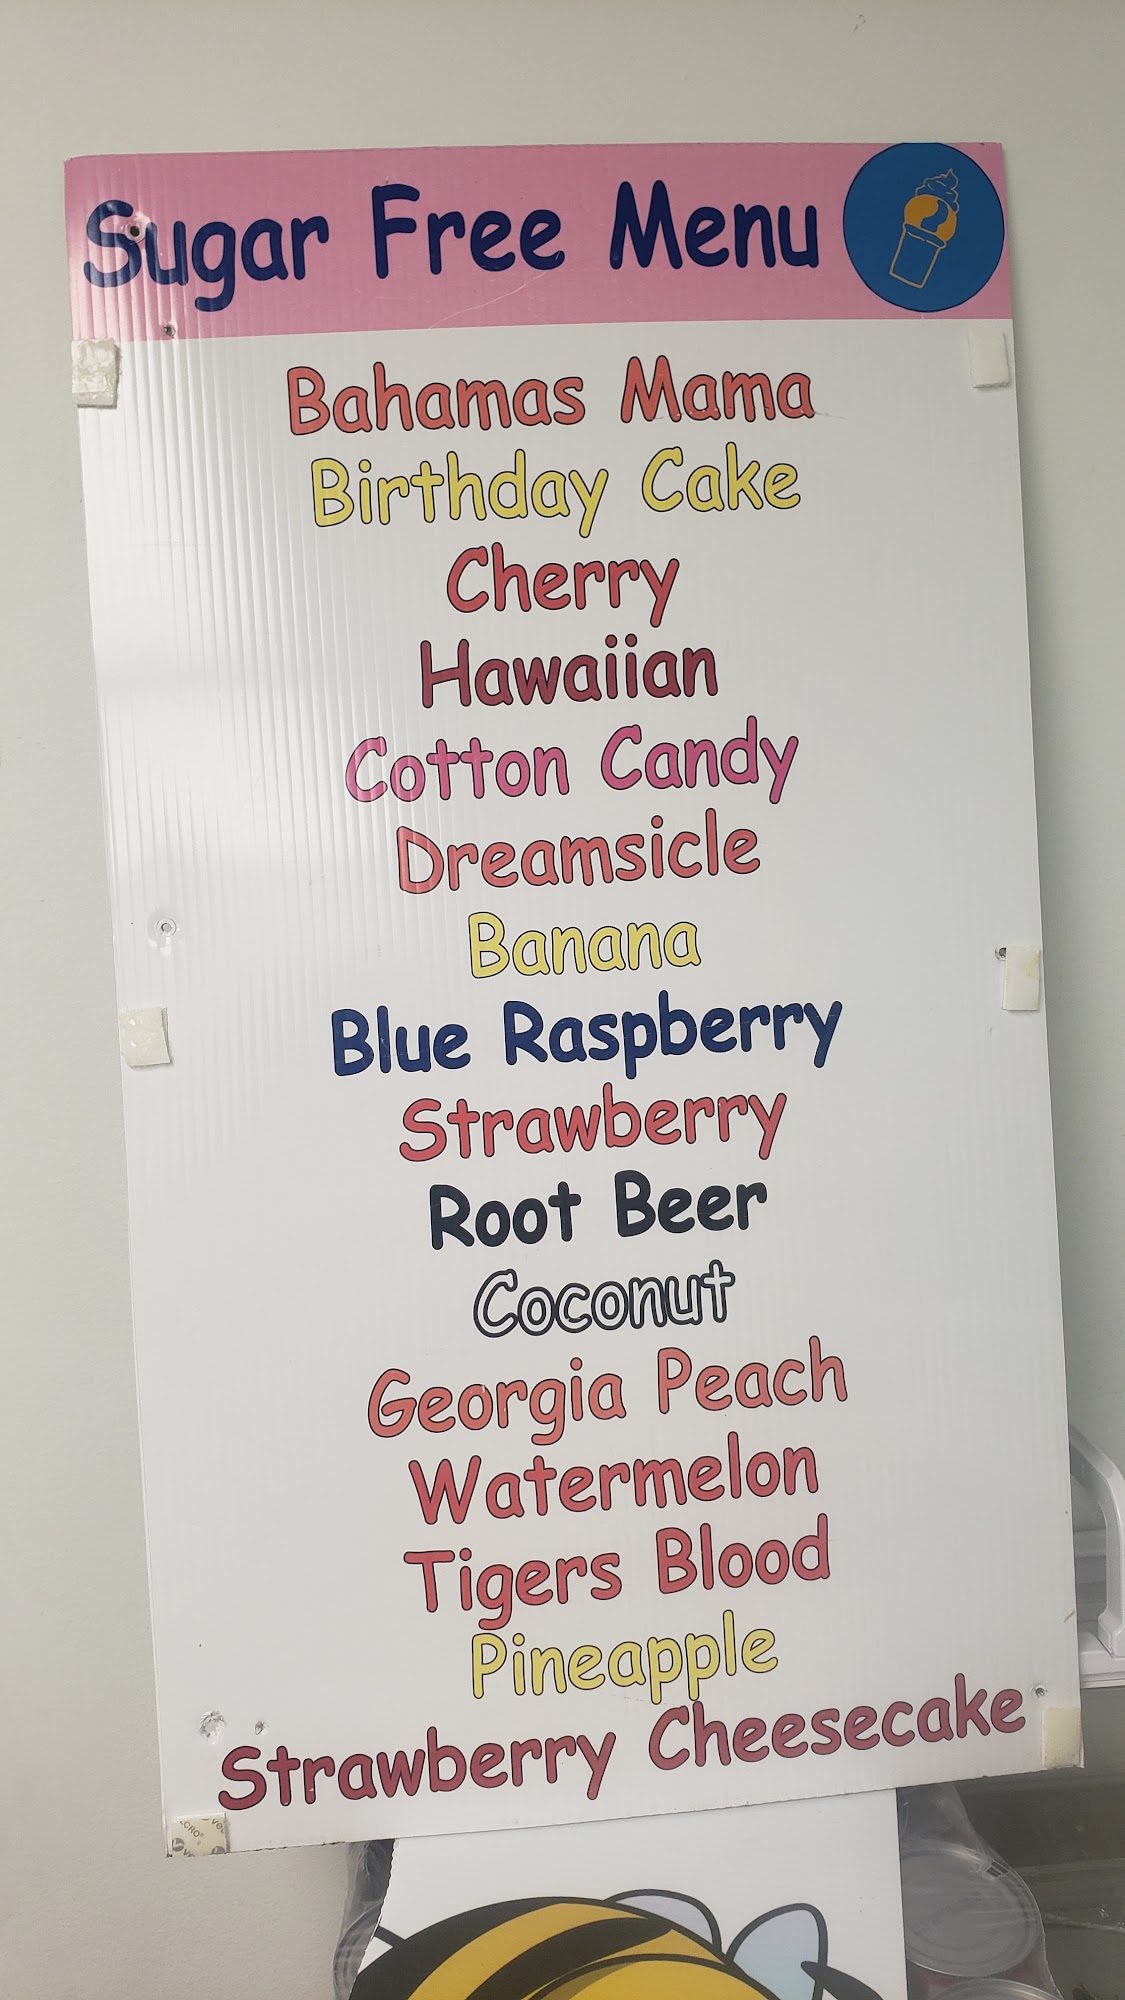 Sugar Free Menu
Bahamas Mama
Birthday Cake
Cherry
Hawaiian
Cotton Candy
Dreamsicle
Banana
Blue Raspberry
Strawberry
Root Beer
Coconut
Georgia Peach
Watermelon
Tigers Blood
Pineapple
Strawberry Cheesecake